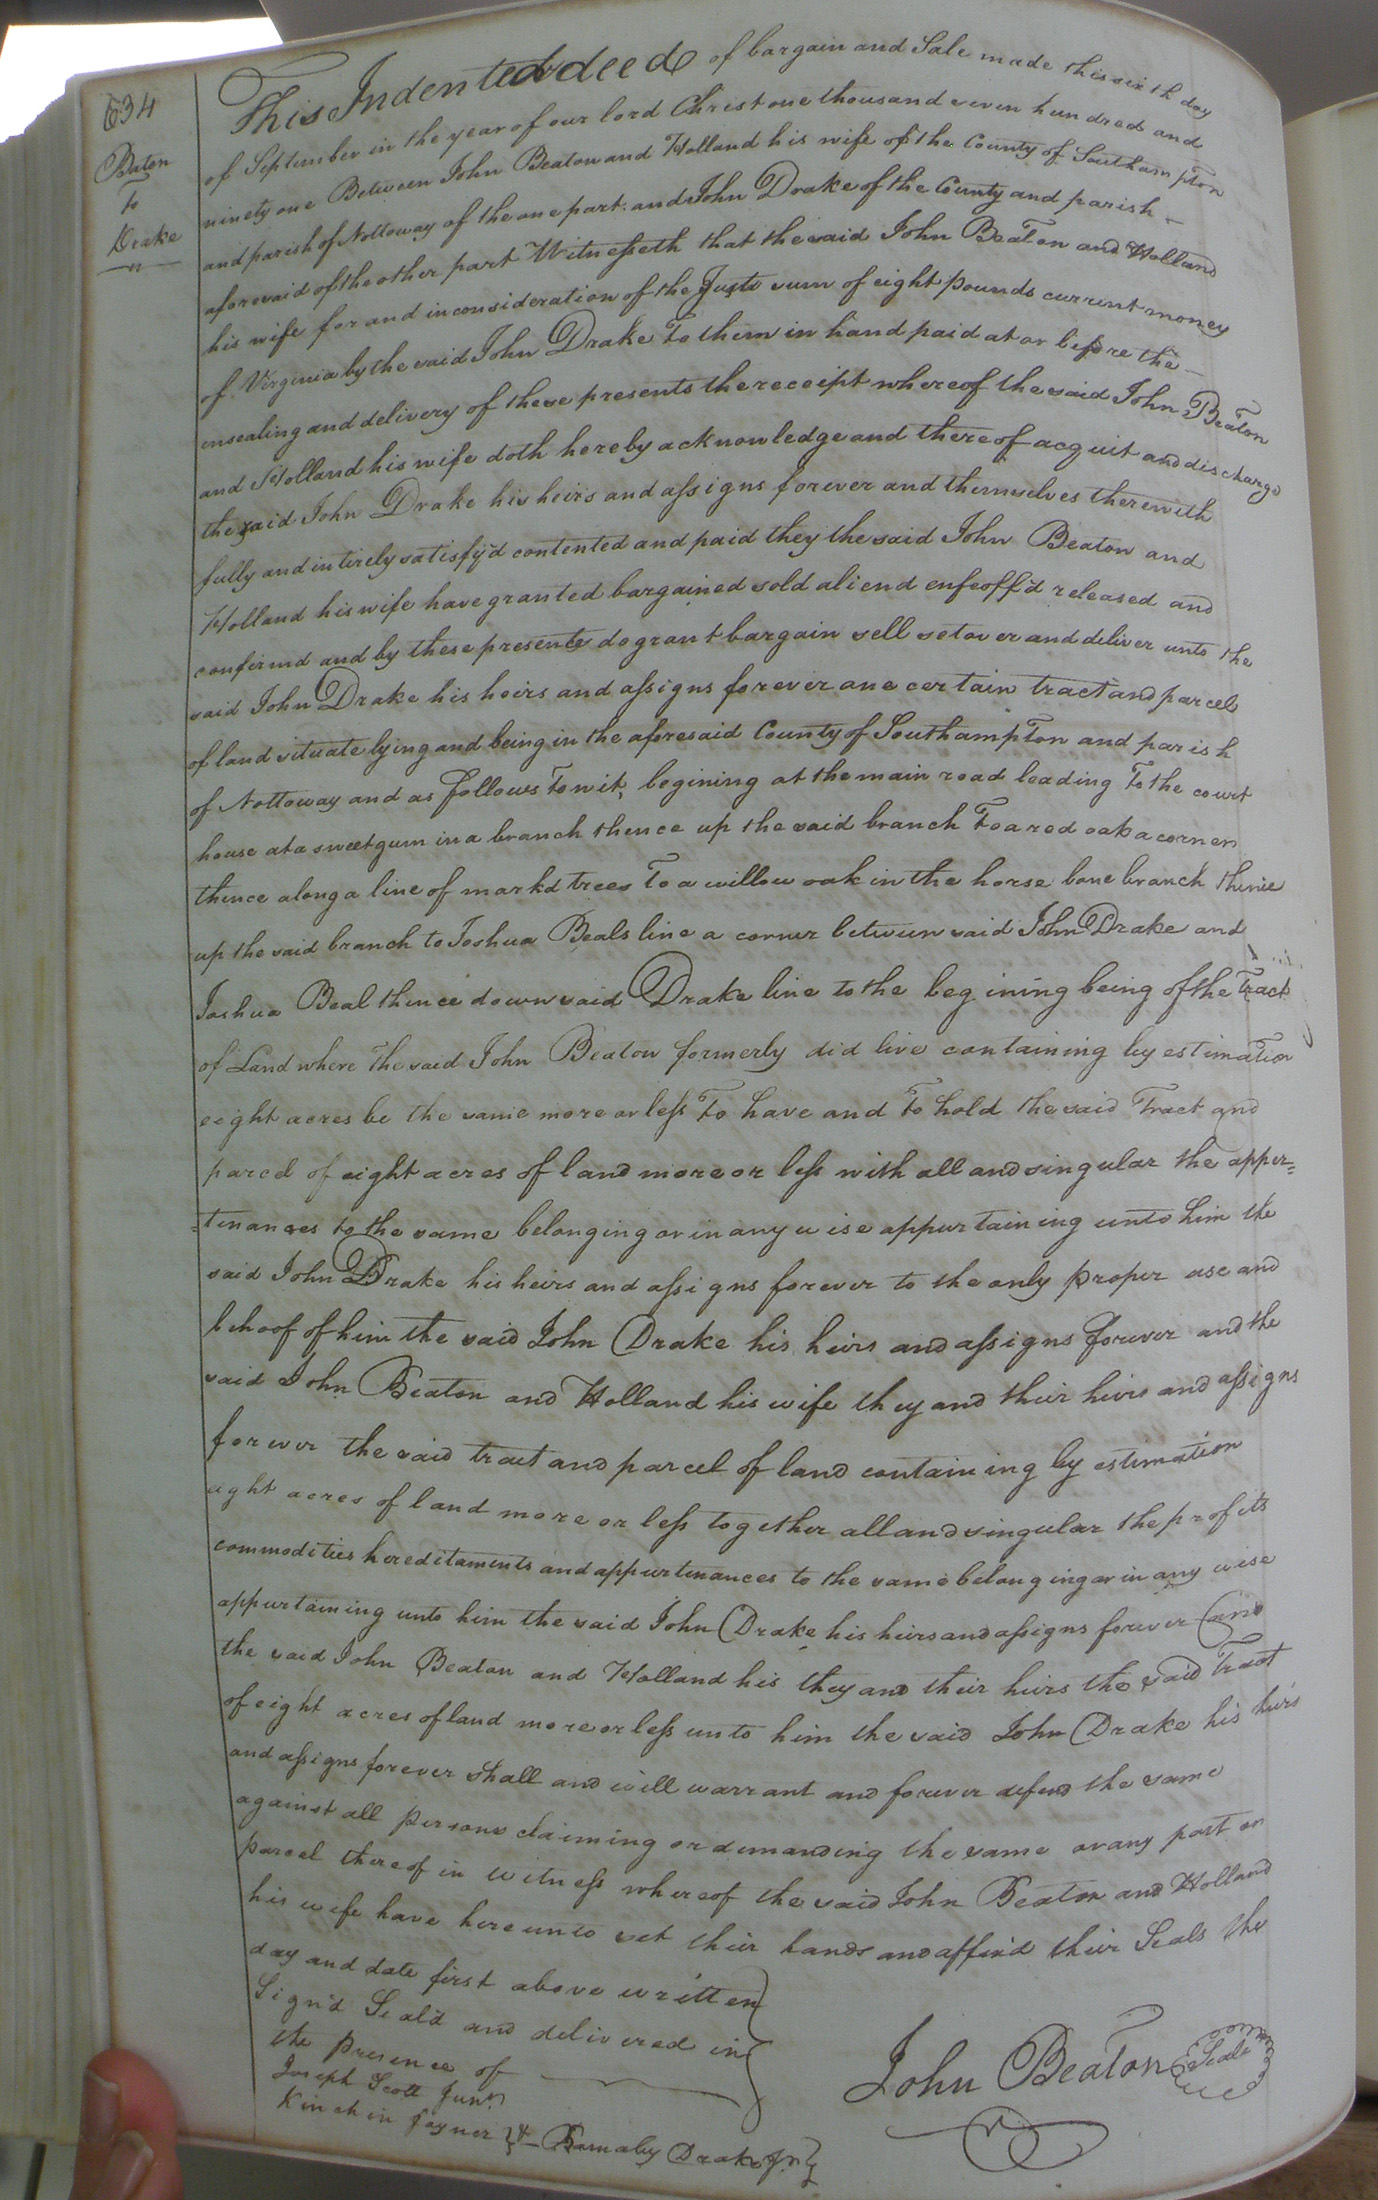 634
Baton
To
Drake
This Indented deed of bargain and Sale made this sixth day
of September in the year of our lord Christ one thousand seven hundred and
ninety one Between John Beaton and Holland his wife of the County of Southampton
and parish of Nottoway of the one part. and John Drake of the County and parish
aforesaid of the other part Witnesseth that the said John Beaton and Holland
his wife for and in consideration of the Just sum of eight pounds current money
of Virginia by the said John Drake To them in hand paid at or before the
ensealing and delivery of these presents the receipt whereof the said John Beaton
and Holland his wife doth hereby acknowledge and thereof acquit and discharge
the said John Drake his heirs and assigns forever and themselves therewith
fully and intirely satisfy'd contented and paid they the said John Beaton and
Holland his wife have granted bargained sold aliend enfeoff'd released and
confirmd and by these presents do grant bargain sell setover and deliver unto the
said John Drake his heirs and assigns forever one certain tract and parcel
of land situate lying and being in the aforesaid County of Southampton and parish
of Nottoway and as follows Towit, begining at the main road leading To the court
house at a sweetgum in a branch thence up the said branch To a red oak a corner
thence along a line of markd trees To a willow oak in the horse bone branch thence
up the said branch to Joshua Beals line a corner between said John Drake and
Joshua Beal thence down said Drake line to the begining being of the Tract
of Land where the said John Beaton formerly did live containing by estimation
eight acres be the same more or less To have and To hold the said Tract and
parcel of eight acres of land more or less with all and singular the apper=
=tenances to the same belonging or in any wise appurtaining unto him the
said John Drake his heirs and assigns forever to the only proper use and
behoof of him the said John Drake his heirs and assigns forever and the
said John Beaton and Holland his wife they and their heirs and assigns
forever the said tract and parcel of land containing by estimation
eight acres of land more or less together all and singular the profits
commodities hereditaments and appurtenances to the same belonging or in any wise
appurtaining unto him the said John Drake his heirs and assigns forever and
the said John Beaton and Holland his they and their heirs the said Tract
of eight acres of land more or less unto him the said John Drake his heirs
and assigns forever shall and will warrant and forever defend the same
against all persons claiming or demanding the same or any part or
parcel thereof in witness whereof the said John Beaton and Holland
his wife have hereunto set their hands and affixd their Seals the
day and date first above written
Sign'd Seal'd and delivered in
the presence of
Joseph Scott Junr.
Kinchin Joyner & Barnaby Drake Jr
John Beaton Seale